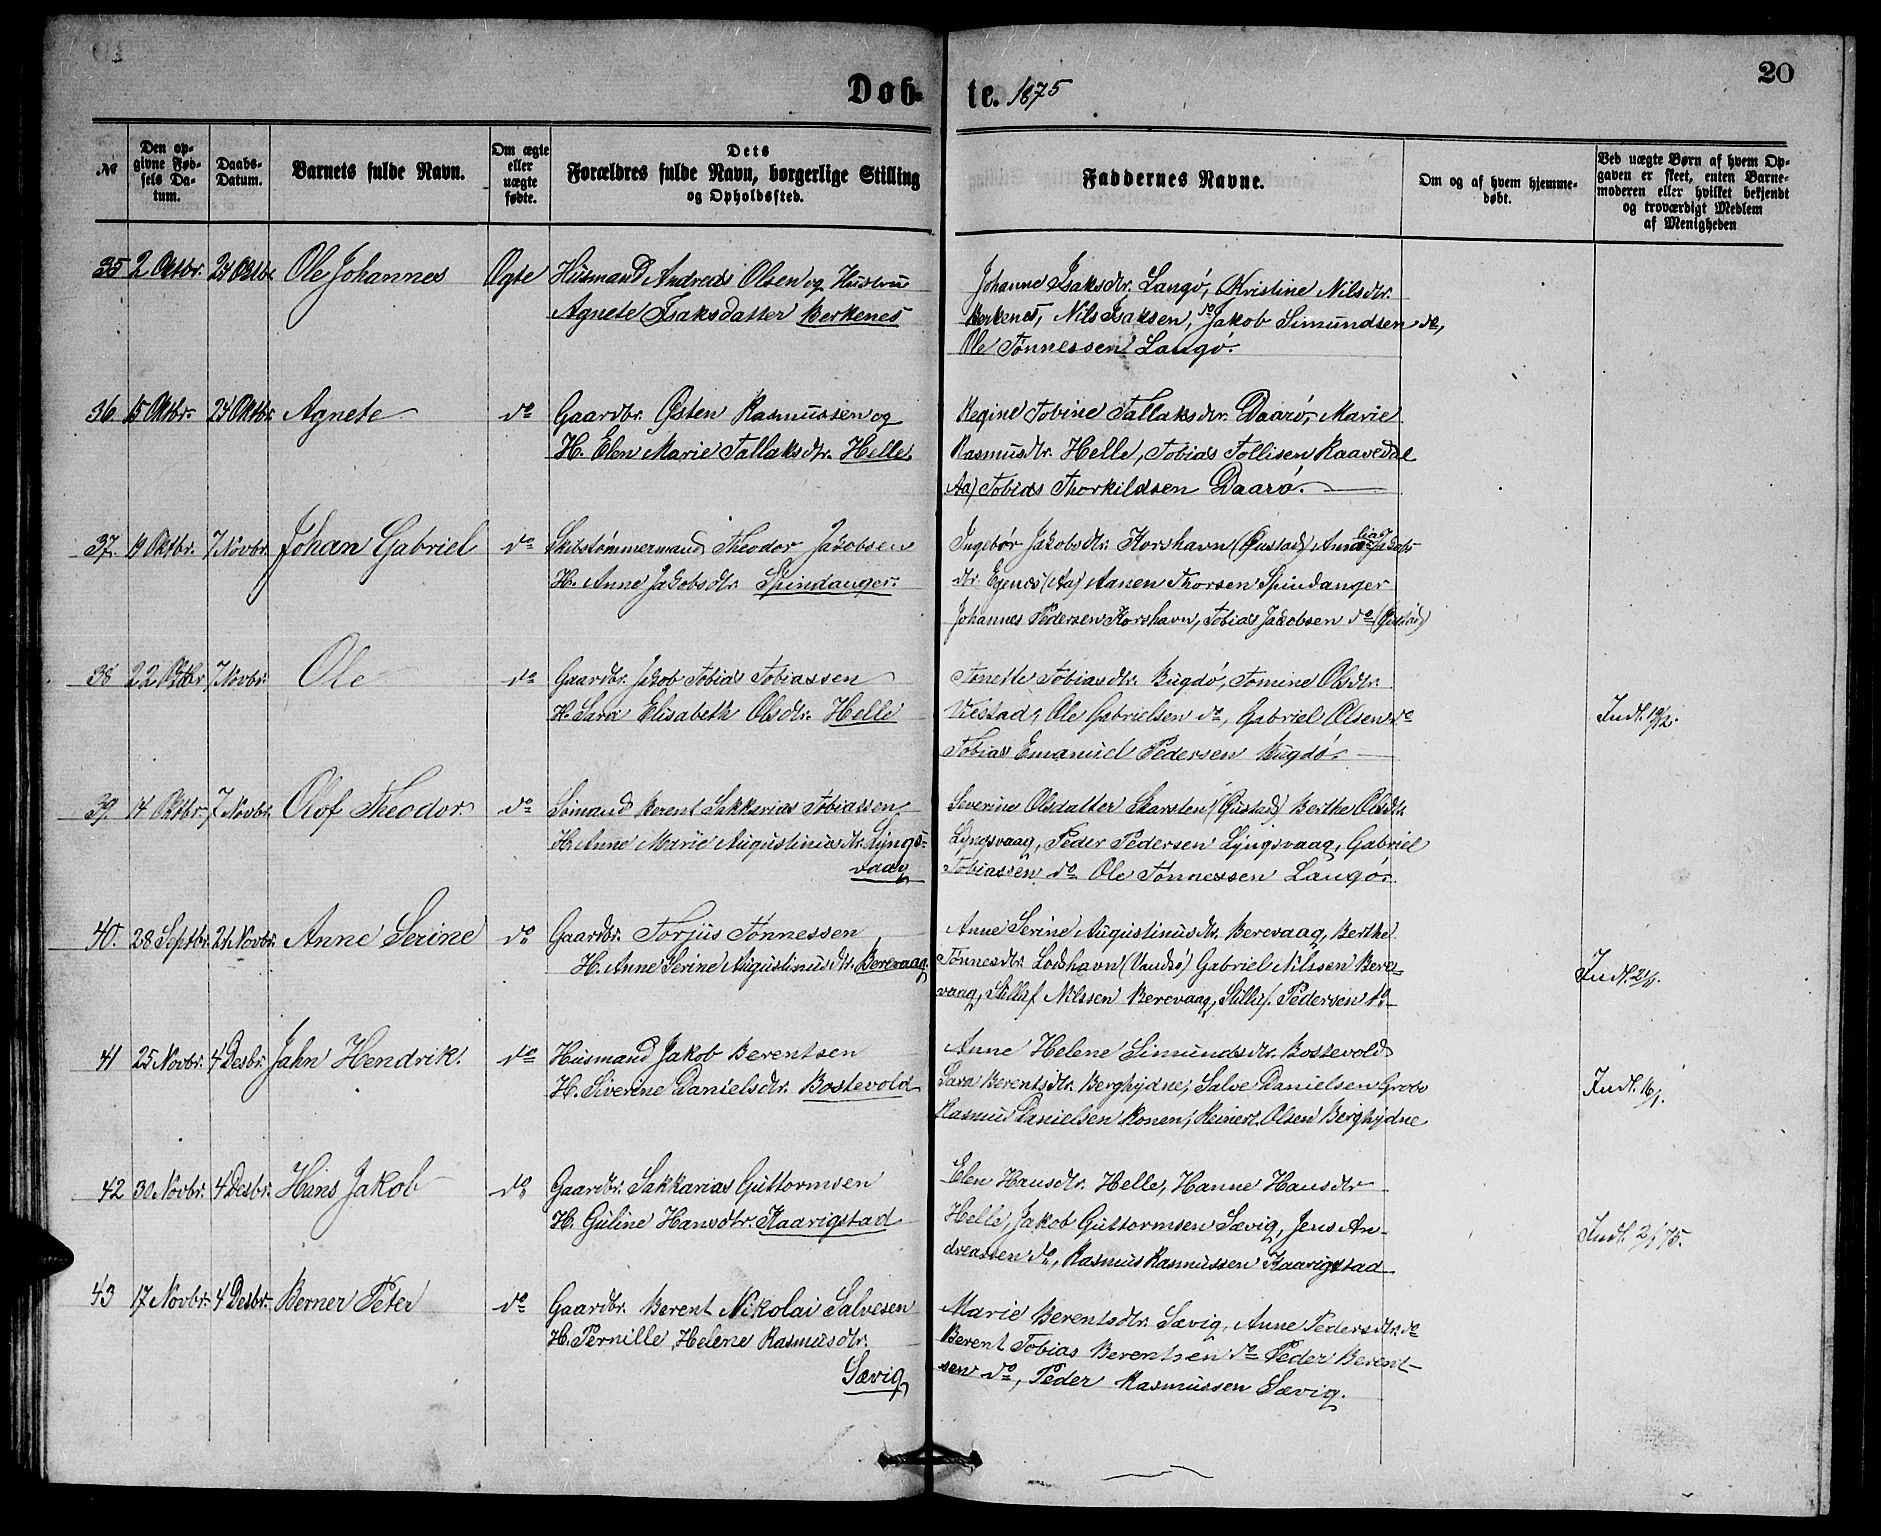 Døb-te. 1875
20
№
Den op-
givne Fød-
sels Da-
tum.
Daabs-
Datum.
Barnets fulde Navn.
Om ægte
eller
uægte
fødte.
Dets
Forældres fulde Navn, borgerlige Stilling
og Opholdssted.
Faddernes Navne.
Om og af hvem hjemme-
døbt.
Ved uægte Børn af hvem Op-
gaven er skeet, enten Barne-
moderen eller hvilket bekjendt
og troværdigt Medlem
af Menigheden
35 2 Oktbr. 24 Oktbr. Ole Johannes Ægte Husmand Andreas Olsen og Hustru
Agnete Isaksdatter Berkenes
Johanne Isaksdtr. Langø, Kristine Nilsdtr.
Berkenes, Nils Isaksen, do Jakob Simundsen do,
Ole Tønnessen Langø.
36. 15 Oktbr. 24 Oktbr. Agnete do Gaardbr. Østen Rasmussen og
H. Elen Marie Tallaksdtr. Helle
Regine Tobine Tallaksdtr. Daarø, Marie
Rasmusdtr. Helle, Tobias Tollisen Raavedal
Aa) Tobias Thorkildsen Daarø.
37. 19 Oktbr. 7 Novbr. Johan Gabriel do Skibstømmermand Theodor Jakobsen
H. Anne Jakobsdtr. Spindanger.
Ingebør Jakobsdtr. Korshavn (Østad) Anne Jakobs-
dtr. Egnes (Aa) Aanen Thorsen Spindanger
Johannes Pedersen Korshavn, Tobias Jakobsen do (Østad)
38 22 Oktbr 7 Novbr. Ole do Gaardbr. Jakob Tobias Tobiassen
H. Sara Elisabeth Olsdtr. Helle
Tønette Tobiasdtr. Bugdø, Tomine Olsdtr.
Viestad, Ole Gabrielsen do, Gabriel Olsen do
Tobias Emanuel Pedersen Bugdø.
Indl. 19/2.
39. 14 Oktbr. 7 Novbr. Olof Theodor. do Sømand Berent Sakkarias Tobiassen
H. Anne Marie Augustinusdtr. Lyngs-
vaag
Severine Olsdatter Skarsten (Østad) Berthe Olsdtr.
Lyngsvaag, Peder Pedersen Lyngsvaag, Gabriel
Tobiassen do Ole Tønnessen Langø.
40. 28 Septbr. 21 Novbr. Anne Serine do Gaardbr. Torjus Tønnessen
H. Anne Serine Augustinusdtr. Berevaag.
Anne Serine Augustinusdtr. Berevaag, Berthe
Tønnesdtr. Lodshavn (Vandsø) Gabriel Nilssen Bere-
vaag, Stillaf Nilssen Berevaag, Stillaf. Pedersen do
41 25 Novbr. 4 Desbr. Jahn Hendrik. do Husmand Jakob Berentsen
H. Siverine Danielsdtr. Bostevold
Anne Helene Simundsdtr. Bostevold
Sara Berentsdtr. Berghydne, Salve Danielsen
Rasmus Danielsen Ronen, Reinert Olsen Berghydne
Indl. 16/1.
42 30 Novbr. 4 Desbr. Hans Jakob do Gaardbr. Sakkarias Guttormsen
H. Guline Hansdtr. Kaarigstad
Elen Hansdtr. Helle, Hanne Hansdtr
Helle, Jakob Guttormsen Sævig, Jens An-
dreassen do, Rasmus Rasmussen Kaarigstad
Indl. 2/1 75.
43 17 Novbr. 4 Desbr. Berner Peter do Gaardbr. Berent Nikolai Salvesen
H. Pernille Helene Rasmusdtr.
Sævig
Marie Berentsdtr. Sævig, Anne Pedersdtr. do
Berent Tobias Berentsen do Peder Berent-
sen do, Peder Rasmussen Sævig.